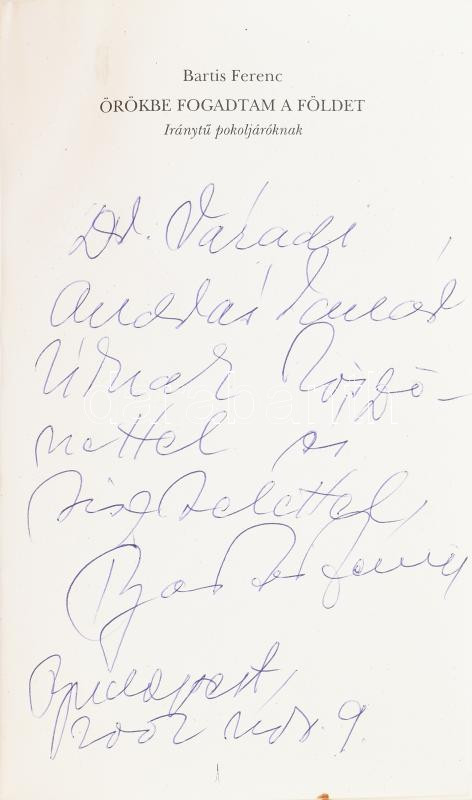 Bartis Ferenc
ÖRÖKBE FOGADTAM A FÖLDET
Iránytű pokoljáróknak
Dr. Váradi
András Tanár
Úrnak köszö-
nettel és
tisztelettel,
Bartis Ferenc
Budapest,
2002 nov. 9.
darabanth